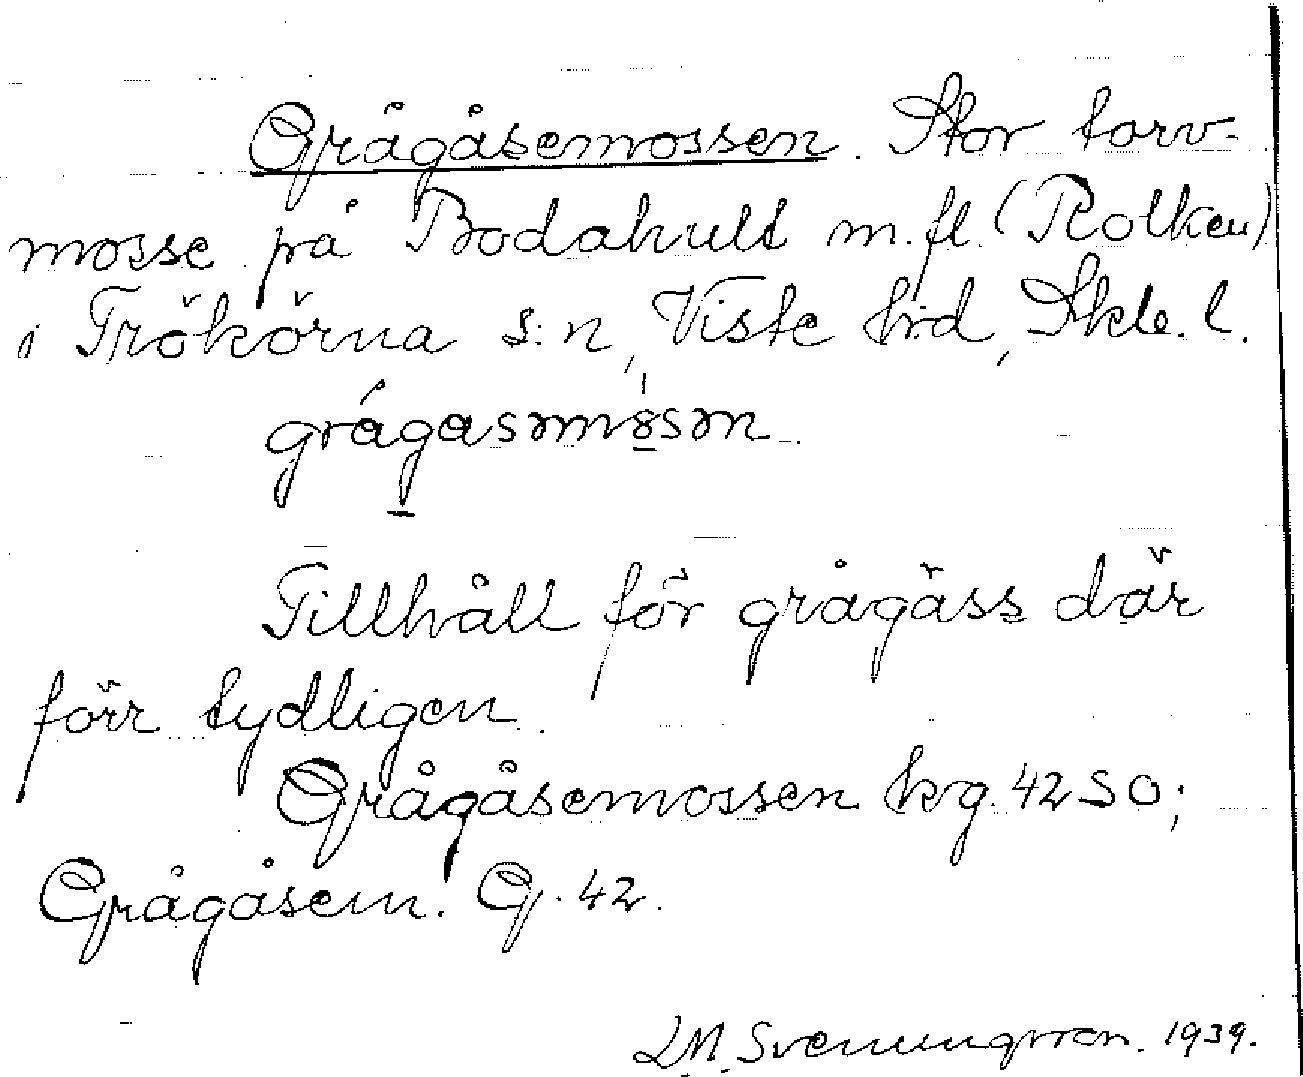 Grågåsemossen. Stor torv-
mosse på Bodahult m.fl. (Rolken)
i Trökörna s:n, Viste hrd, Skbs. l.
grågasəmåsən
Tillhåll för grågäss där
förr tydligen.
Grågåsemossen krg. 42 SO;
Grågåsem. G. 42.
Svenungsson. 1939.